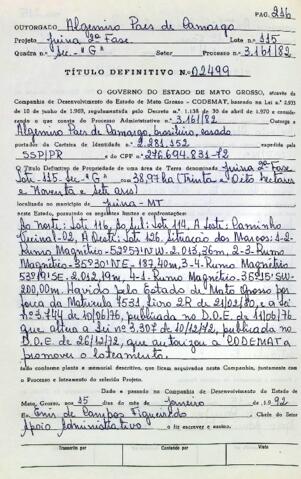 PAG. 236
OUTORGADO Algemiro Paes de Camargo
Projeto Juina 2ª Fase Lote 115
Quadra nº Sec. "G" Setor Processo 3.161/82
TÍTULO DEFINITIVO N.º 02499
O GOVERNO DO ESTADO DE MATO GROSSO, através da
Companhia de Desenvolvimento do Estado de Mato Grosso - CODEMAT, baseado na Lei n.º 2.933
de 10 de junho de 1969, regulamentada pelo Decreto n.º 1.138 de 30 de abril de 1970 e considerando
o que consta do Processo Administrativo n.º 3.161/82 Outorga a
Algemiro Paes de Camargo, brasileiro, casado
portador da Carteira de Identidade n.º 2.281.552 expedida
SSP/PR e do CPF n.º 276.694.831-72
O Título Definitivo de Propriedade de uma área de Terras denominada Juina 2ª Fase
Lote 115 Sec. "G" com 38,97ha (Trinta e Oito hectares
e Noventa e Sete ares)
localizada no município de Juina - MT
neste Estado, possuindo os seguintes limites e confrontações:
Ao Norte: Lote 116, Ao Sul: Lote 114, A Leste: Caminho
Vicinal-02, A Oeste: Lote 126. Situação dos Marcos: 1-2-
Rumo Magnético - 52º57'10"W - 2.013,36m, 2-3-Rumo
Magnético - 35º30'NE - 187,40m, 3-4- Rumo Magnético-
53º19'SE - 2.012,19m, 4-1- Rumo Magnético-35º15'SW-
200,00m. Havido pelo Estado de Mato Grosso por
força da Matrícula 4531, Livro 2R de 21/02/80, e a Lei
nº 3.744 de 10/06/76, publicada no D.O.E de 11/06/76
que altera a Lei nº 3.307 de 10/12/72, publicada no
D.O.E de 26/12/72, que autorizou a CODEMAT a
promover o loteamento.
tudo conforme planta e memorial descritivo, que ficam arquivados nesta Companhia, juntamente com
o Processo de loteamento do referido Projeto.
Dado e passado na Companhia de Desenvolvimento do Estado de
Mato Grosso, aos 15 dias do mês de Janeiro de 19 92
Eu Enir de Campos Figueiredo Chefe do Setor
Apoio Administrativo o fiz escrever e assino.
Transcrito por Conferido por Visto